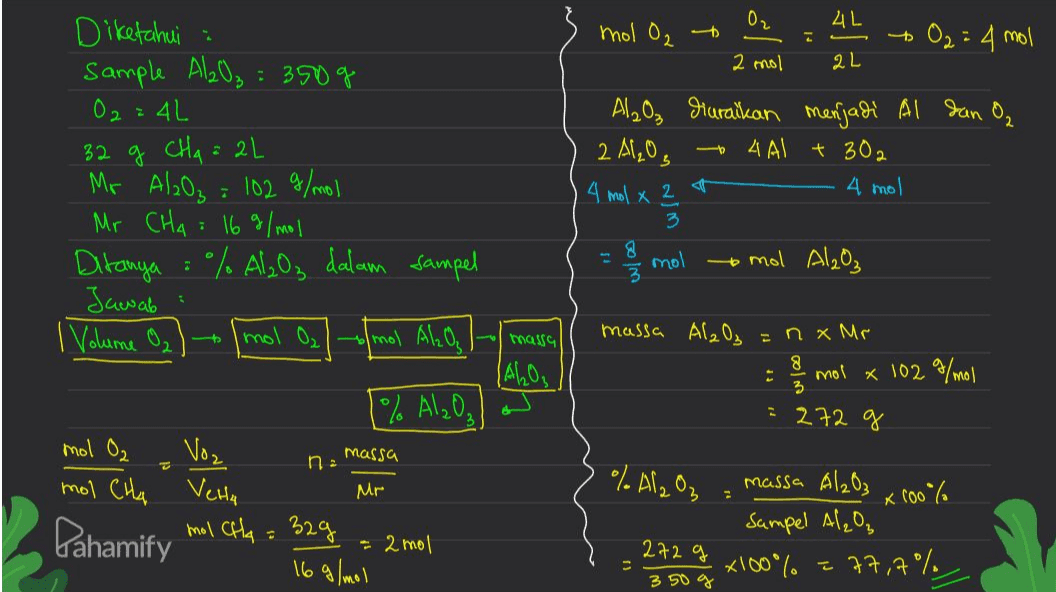 Diketahui :
Sample Al₂O₃ : 350 g
O₂ = 4L
32 g CH₄ = 2L
Mr Al₂O₃ = 102 g/mol
Mr CH₄ : 16 g/mol
Ditanya : % Al₂O₃ dalam sampel
Jawab :
Volume O₂ → mol O₂ → mol Al₂O₃ → massa Al₂O₃
% Al₂O₃
mol O₂ / mol CH₄ = VO₂ / VCH₄
n = massa / Mr
mol CH₄ = 32g / 16 g/mol = 2 mol
Pahamify
mol O₂ → O₂ / 2 mol = 4L / 2L → O₂ = 4 mol
Al₂O₃ diuraikan menjadi Al dan O₂
2 Al₂O₃ → 4 Al + 3O₂
4 mol x 2/3 ← 4 mol
= 8/3 mol → mol Al₂O₃
massa Al₂O₃ = n x Mr
= 8/3 mol x 102 g/mol
= 272 g
% Al₂O₃ = massa Al₂O₃ / Sampel Al₂O₃ x 100%
= 272 g / 350 g x100% = 77,7%